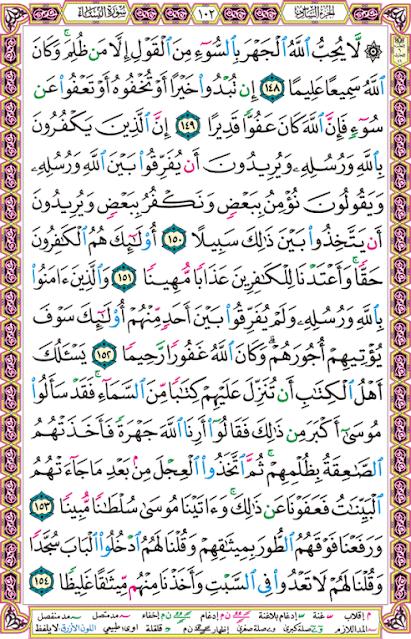 سُورَةُ النِّسَاءِ ١٠٢ الجزء السادس
لَّا يُحِبُّ ٱللَّهُ ٱلْجَهْرَ بِٱلسُّوٓءِ مِنَ ٱلْقَوْلِ إِلَّا مَن ظُلِمَ ۚ وَكَانَ
ٱللَّهُ سَمِيعًا عَلِيمًا ١٤٨ إِن تُبْدُوا۟ خَيْرًا أَوْ تُخْفُوهُ أَوْ تَعْفُوا۟ عَن
سُوٓءٍ فَإِنَّ ٱللَّهَ كَانَ عَفُوًّا قَدِيرًا ١٤٩ إِنَّ ٱلَّذِينَ يَكْفُرُونَ
بِٱللَّهِ وَرُسُلِهِۦ وَيُرِيدُونَ أَن يُفَرِّقُوا۟ بَيْنَ ٱللَّهِ وَرُسُلِهِۦ
وَيَقُولُونَ نُؤْمِنُ بِبَعْضٍ وَنَكْفُرُ بِبَعْضٍ وَيُرِيدُونَ
أَن يَتَّخِذُوا۟ بَيْنَ ذَٰلِكَ سَبِيلًا ١٥٠ أُو۟لَٰٓئِكَ هُمُ ٱلْكَٰفِرُونَ
حَقًّا ۚ وَأَعْتَدْنَا لِلْكَٰفِرِينَ عَذَابًا مُّهِينًا ١٥١ وَٱلَّذِينَ ءَامَنُوا۟
بِٱللَّهِ وَرُسُلِهِۦ وَلَمْ يُفَرِّقُوا۟ بَيْنَ أَحَدٍ مِّنْهُمْ أُو۟لَٰٓئِكَ سَوْفَ
يُؤْتِيهِمْ أُجُورَهُمْ ۗ وَكَانَ ٱللَّهُ غَفُورًا رَّحِيمًا ١٥٢ يَسْـَٔلُكَ
أَهْلُ ٱلْكِتَٰبِ أَن تُنَزِّلَ عَلَيْهِمْ كِتَٰبًا مِّنَ ٱلسَّمَآءِ ۚ فَقَدْ سَأَلُوا۟
مُوسَىٰٓ أَكْبَرَ مِن ذَٰلِكَ فَقَالُوٓا۟ أَرِنَا ٱللَّهَ جَهْرَةً فَأَخَذَتْهُمُ
ٱلصَّٰعِقَةُ بِظُلْمِهِمْ ۚ ثُمَّ ٱتَّخَذُوا۟ ٱلْعِجْلَ مِنۢ بَعْدِ مَا جَآءَتْهُمُ
ٱلْبَيِّنَٰتُ فَعَفَوْنَا عَن ذَٰلِكَ ۚ وَءَاتَيْنَا مُوسَىٰ سُلْطَٰنًا مُّبِينًا ١٥٣
وَرَفَعْنَا فَوْقَهُمُ ٱلطُّورَ بِمِيثَٰقِهِمْ وَقُلْنَا لَهُمُ ٱدْخُلُوا۟ ٱلْبَابَ سُجَّدًا
وَقُلْنَا لَهُمْ لَا تَعْدُوا۟ فِى ٱلسَّبْتِ وَأَخَذْنَا مِنْهُم مِّيثَٰقًا غَلِيظًا ١٥٤